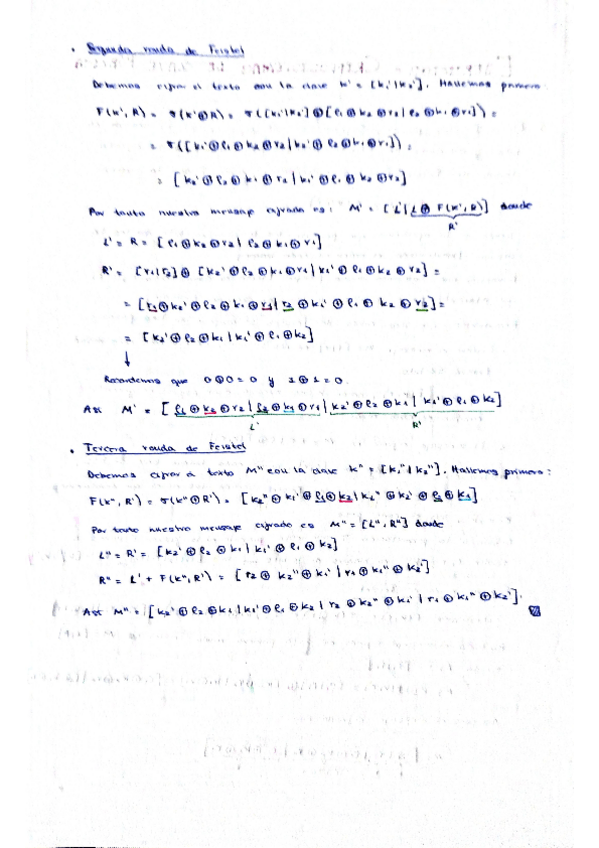 • Segunda ronda de Feistel
Debemos cifrar el texto con la clave k' = [k₁'|k₂']. Hallemos primero:
F(k', R) = σ(k'⊕R) = σ([k₁'|k₂'] ⊕ [ℓ₁ ⊕ k₂ ⊕ r₂ | ℓ₂ ⊕ k₁ ⊕ r₁]) =
= σ([k₁'⊕ℓ₁⊕k₂⊕r₂ | k₂'⊕ℓ₂⊕k₁⊕r₁]) =
= [k₂'⊕ℓ₂⊕k₁⊕r₁ | k₁'⊕ℓ₁⊕k₂⊕r₂]
Por tanto nuestro mensaje cifrado es: M' = [L' | L⊕F(k', R)] donde
R'
L' = R = [ℓ₁⊕k₂⊕r₂ | ℓ₂⊕k₁⊕r₁]
R' = [r₁|r₂] ⊕ [k₂'⊕ℓ₂⊕k₁⊕r₁ | k₁'⊕ℓ₁⊕k₂⊕r₂] =
= [r₁⊕k₂'⊕ℓ₂⊕k₁⊕r₁ | r₂⊕k₁'⊕ℓ₁⊕k₂⊕r₂] =
= [k₂'⊕ℓ₂⊕k₁ | k₁'⊕ℓ₁⊕k₂]
↓
Recordemos que 0⊕0=0 y 1⊕1=0
Así M' = [ℓ₁⊕k₂⊕r₂ | ℓ₂⊕k₁⊕r₁ | k₂'⊕ℓ₂⊕k₁ | k₁'⊕ℓ₁⊕k₂]
L' R'
• Tercera ronda de Feistel
Debemos cifrar el texto M'' con la clave k'' = [k₁''|k₂'']. Hallemos primero:
F(k'', R') = σ(k''⊕R') = [k₂''⊕k₁'⊕ℓ₁⊕k₂ | k₁''⊕k₂'⊕ℓ₂⊕k₁]
Por tanto nuestro mensaje cifrado es M'' = [L'', R''] donde
L'' = R' = [k₂'⊕ℓ₂⊕k₁ | k₁'⊕ℓ₁⊕k₂]
R'' = L' + F(k'', R') = [r₂⊕k₂''⊕k₁' | r₁⊕k₁''⊕k₂']
Así M'' = [k₂'⊕ℓ₂⊕k₁ | k₁'⊕ℓ₁⊕k₂ | r₂⊕k₂''⊕k₁' | r₁⊕k₁''⊕k₂'].